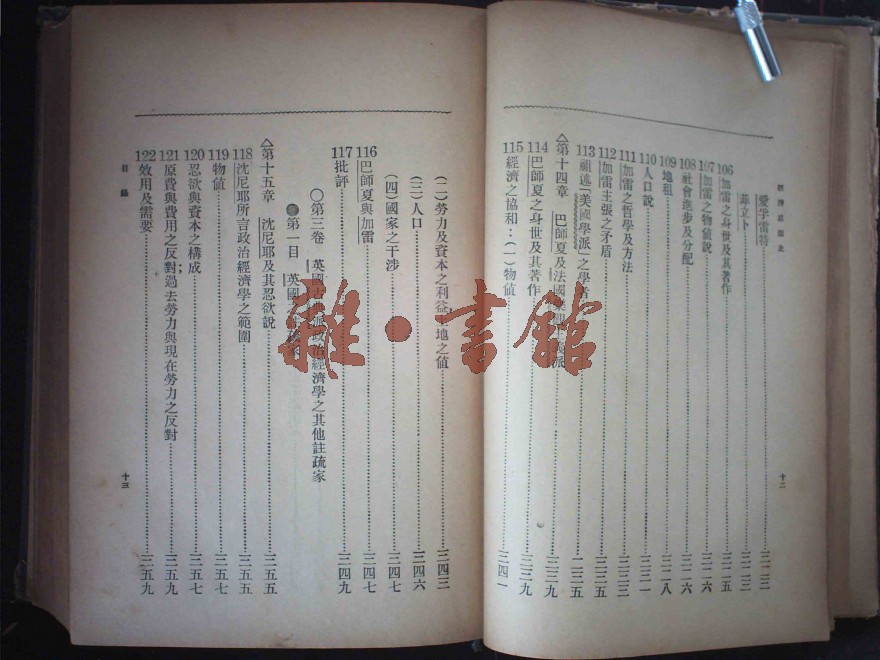 經濟思想史
愛孚雷特……二二三
菲立卜……二二三
106 加雷之身世及其著作……二二五
107 加雷之物值說……二二六
108 社會進步及分配……二二七
109 地租……二二八
110 人口說……二三一
111 加雷之哲學及方法……二三三
112 加雷主張之矛盾……二三五
113 祖述「美國學派」之學者……二三五
△第十四章 巴師夏及法國 派……二三九
114 巴師夏之身世及其著作……二三九
115 經濟之協和：(一)物值……二四一
十二
(二)勞力及資本之利益 地之值……二四三
(三)人口……二四六
(四)國家之干涉……二四七
116 巴師夏與加雷……二四七
117 批評……二四九
○第三卷 英國 派政治經濟學之其他註疏家
第一目 英國之
△第十五章 沈尼耶及其忍欲說……二五五
118 沈尼耶所言政治經濟學之範圍……二五五
119 物值……二五七
120 忍欲與資本之構成……二五七
121 原費與費用之反對；過去勞力與現在勞力之反對……二五九
122 效用及需要……二五九
目錄
十三
雜·書館